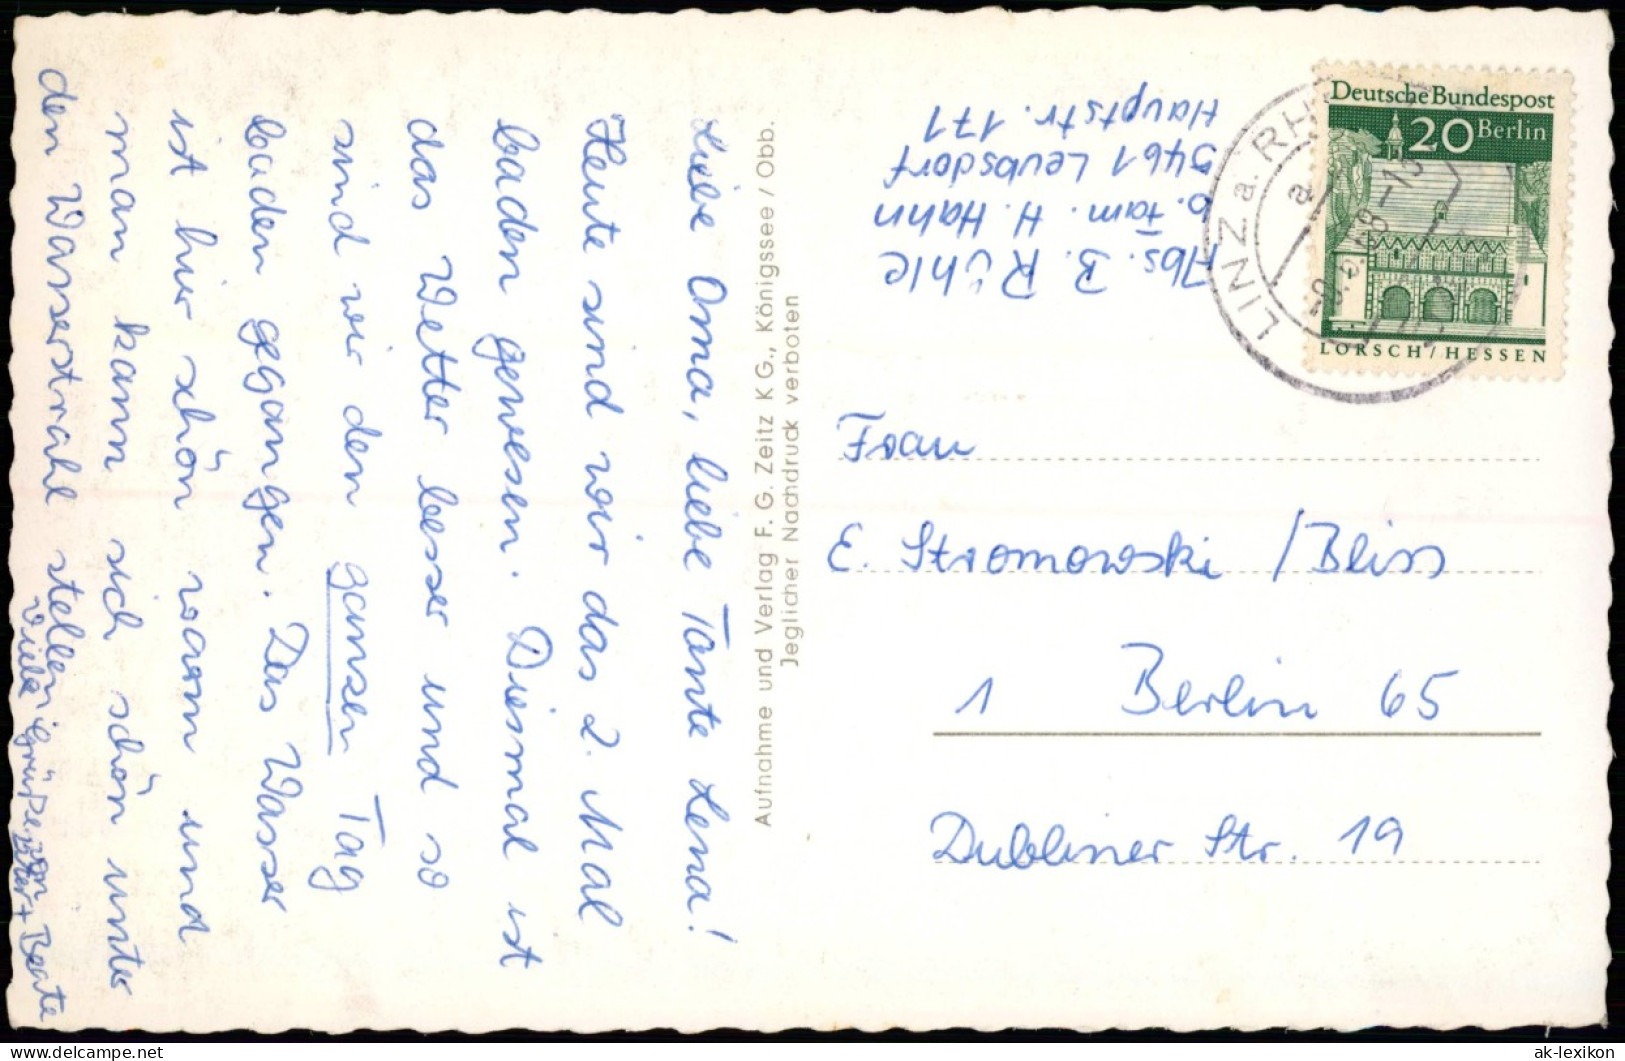 Liebe Oma, liebe Tante Lena!
Heute sind wir das 2. Mal
baden gewesen. Diesmal ist
das Wetter besser und so
sind wir den ganzen Tag
baden gegangen. Das Wasser
ist hier schön warm und
man kann sich schön unter
den Wasserstrahl stellen.
Viele Grüße von
+ Beate
Aufnahme und Verlag F. G. Zeitz KG., Königssee / Obb.
Jeglicher Nachdruck verboten
Abs. B. Rühle
b. Fam. H. Hahn
5461 Leubsdorf
Hauptstr. 171
Deutsche Bundespost
20 Berlin
LORSCH/HESSEN
LINZ a. RH
a
-13
Frau
E. Stromowski / Bliss
1 Berlin 65
Dubliner Str. 19
ak-lexikon